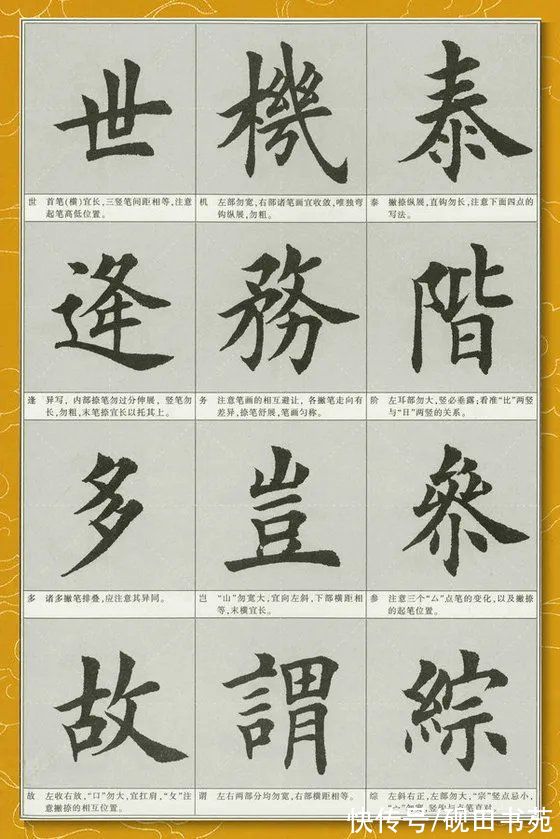 世 機 泰
世 首笔(横)宜长,三竖笔间距相等,注意
起笔高低位置。
机 左部勿宽,右部诸笔画宜收敛,唯独弯
钩纵展,勿粗。
泰 撇捺纵展,直钩勿长,注意下面四点的
写法。
逢 務 階
逢 异写，内部捺笔勿过分伸展，竖笔勿
长,勿粗,末笔捺宜长以托其上。
务 注意笔画的相互避让，各撇笔走向有
差异,捺笔舒展,笔画匀称。
阶 左耳部勿大,竖必垂露;看准“比”两竖
与“日”两竖的关系。
多 豈 參
多 诸多撇笔排叠,应注意其异同。
岂 “山”勿宽大,宜向左斜,下部横距相
等,末横宜长。
参 注意三个“厶”点笔的变化,以及撇捺
的起笔位置。
故 謂 綜
故 左收右放,“口”勿大,宜扛肩,“攵”注
意撇捺的相互位置。
谓 左右两部分均勿宽,右部横距相等。
综 左斜右正,左部勿大,“宗”竖点忌小,
快传号/砚田书苑